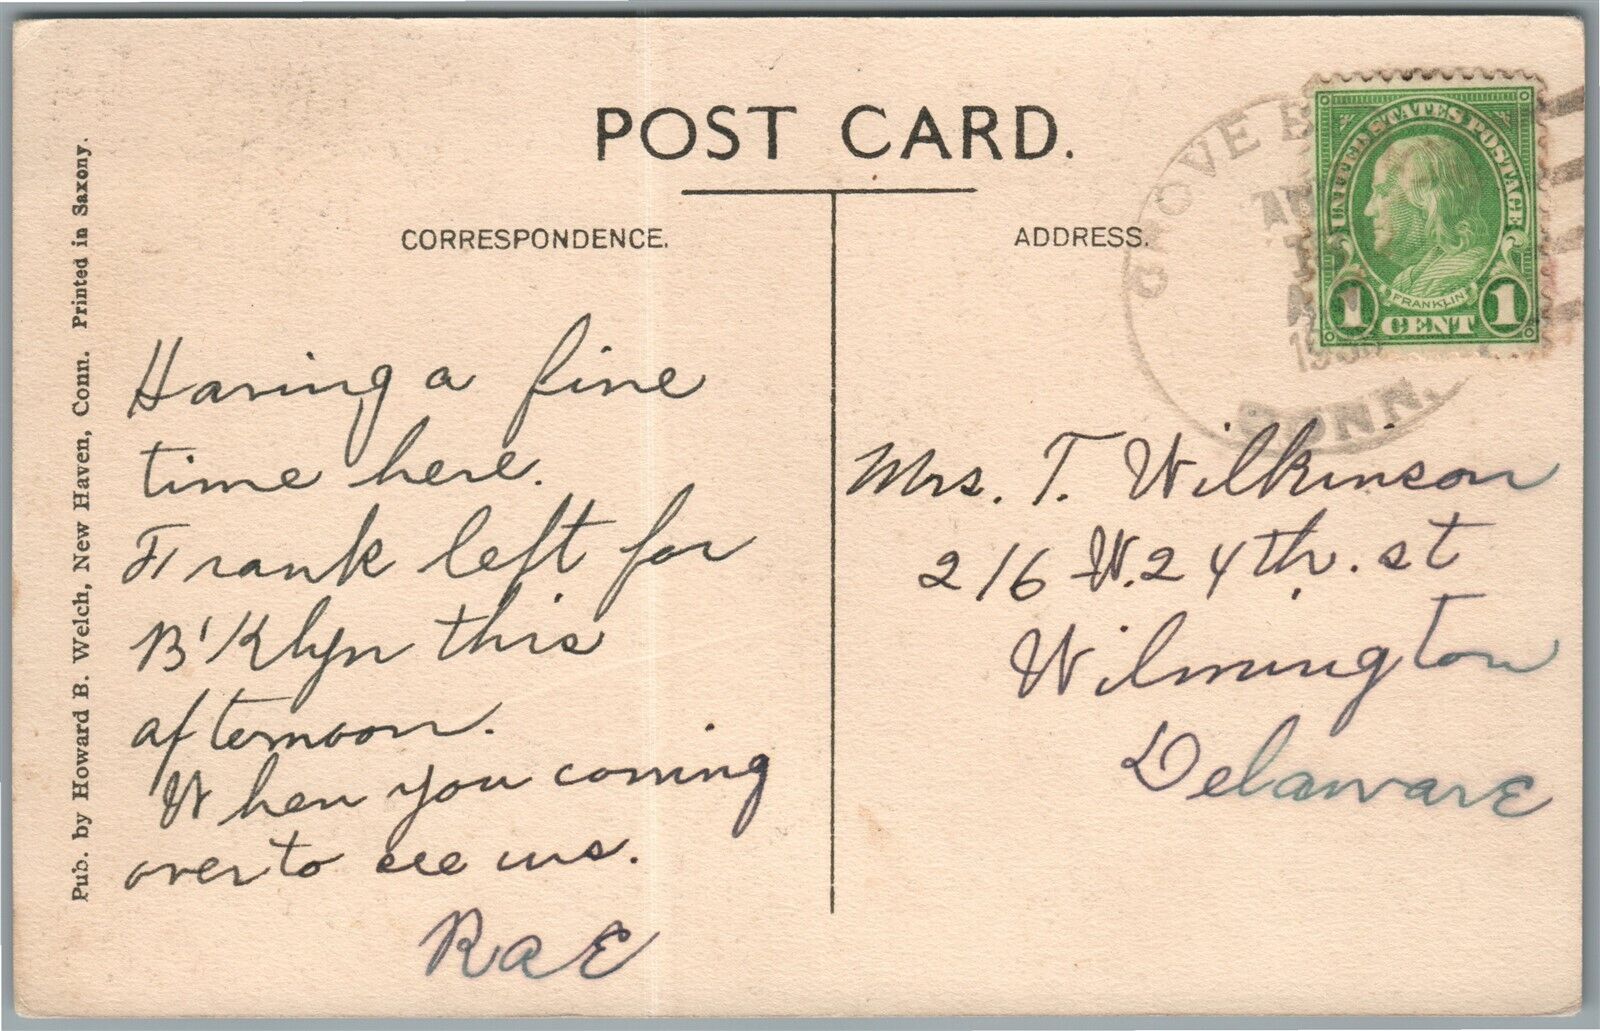 POST CARD.
CORRESPONDENCE.
ADDRESS.
Pub. by Howard B. Welch, New Haven, Conn. Printed in Saxony.
Having a fine
time here.
Frank left for
B'Klyn this
afternoon.
When you coming
over to see us.
RAE
Mrs. T. Wilkinson
216 W. 24th. st
Wilmington
Delaware
GROVE
CONN.
UNITED STATES POSTAGE
FRANKLIN
1 CENT 1